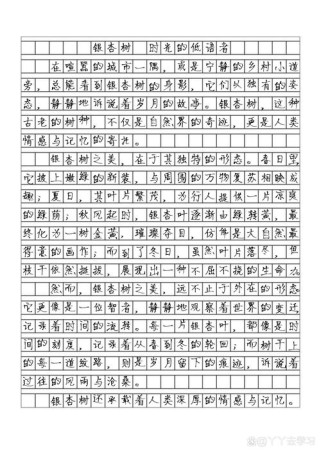 银杏树 时光的低语者
在喧嚣的城市一隅，或是宁静的乡村小道
旁，总能看到银杏树的身影，它们以独有的姿
态，静静地诉说着岁月的故事。银杏树，这种
古老的树种，不仅是自然界的奇迹，更是人类
情感与记忆的寄世。
银杏树之美，在于其独特的形态。春日里
它披上嫩绿的新装，与周围的万物复苏相映成
趣；夏日，其叶片繁茂，为行人提供一片凉爽
的绿荫；秋风起时，银杏叶逐渐由绿转黄，最
终化为一树金黄，璀璨夺目，仿佛是大自然最
得意的画作；而到了冬日，虽然叶片落尽，但
枝干依然挺拔，展现出一种不屈不挠的生命力
然而，银杏树之美，远不止于外在的形态
它更像是一位智者，静静地观察着世界的变迁
记录着时间的流转。每一片银杏叶，都像是时
间的刻度，记录着从春到冬的轮回；而树干上
的每一道纹路，则是岁月留下的痕迹，诉说着
过往的风雨与沧桑。
银杏树还承载着人类深厚的情感与记忆。